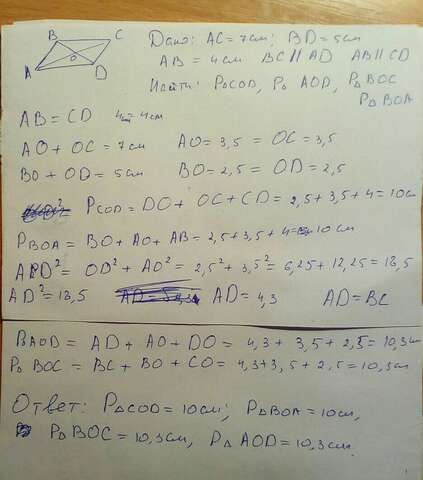 B C
O
A D
Дано: AC = 7см; BD = 5см
AB = 4см BC ∥ AD AB ∥ CD
Найти: P△COD, P△ AOD, P△ BOC
P△ BOA
AB = CD 4см = 4см
AO + OC = 7см AO = 3,5 = OC = 3,5
BO + OD = 5см BO = 2,5 = OD = 2,5
PCOD = DO + OC + CD = 2,5 + 3,5 + 4 = 10см
PBOA = BO + AO + AB = 2,5 + 3,5 + 4 = 10см
AD² = OD² + AO² = 2,5² + 3,5² = 6,25 + 12,25 = 18,5
AD² = 18,5 AD = 4,3 AD = BC
PAOD = AD + AO + DO = 4,3 + 3,5 + 2,5 = 10,3см
P△ BOC = BC + BO + CO = 4,3 + 3,5 + 2,5 = 10,3см
Ответ: P△COD = 10см; P△BOA = 10см,
P△BOC = 10,3см, P△ AOD = 10,3см.